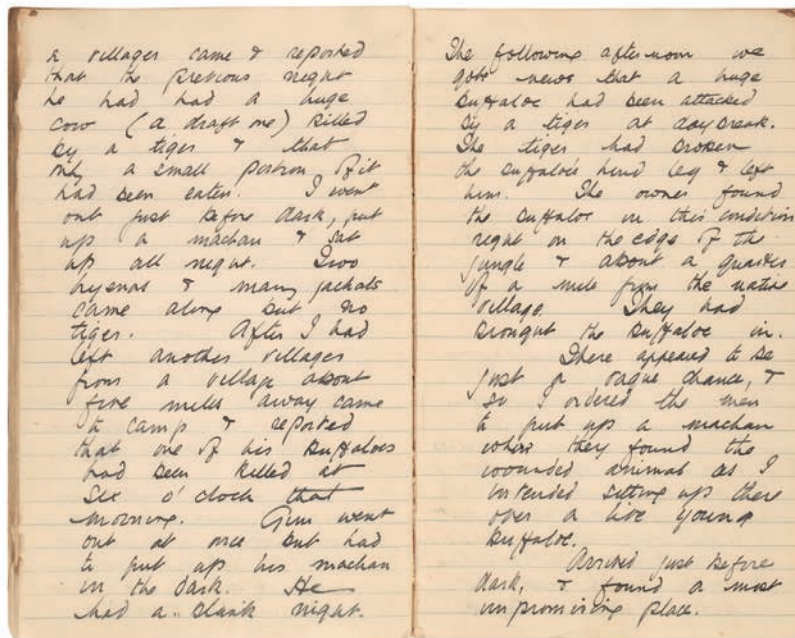 a villager came & reported
that the previous night
he had had a huge
cow (a draft one) killed
by a tiger & that
only a small portion of it
had been eaten. I went
out just before dark, put
up a machan & sat
up all night. Two
hyenas & many jackals
came along but no
tiger. After I had
left another villager
from a village about
five miles away came
to camp & reported
that one of his buffaloes
had been killed at
six o'clock that
morning. Gim went
out at once but had
to put up his machan
in the dark. He
had a blank night.
The following afternoon we
got news that a huge
buffaloe had been attacked
by a tiger at daybreak.
The tiger had broken
the buffaloe's hind leg & left
him. The owner found
the buffaloe in this condition
right on the edge of the
jungle & about a quarter
of a mile from the native
village. They had
brought the buffaloe in.
There appeared to be
just a vague chance, &
so I ordered the men
to put up a machan
where they found the
wounded animal as I
intended sitting up there
over a live young
buffaloe.
Arrived just before
dark, & found a most
unpromising place.